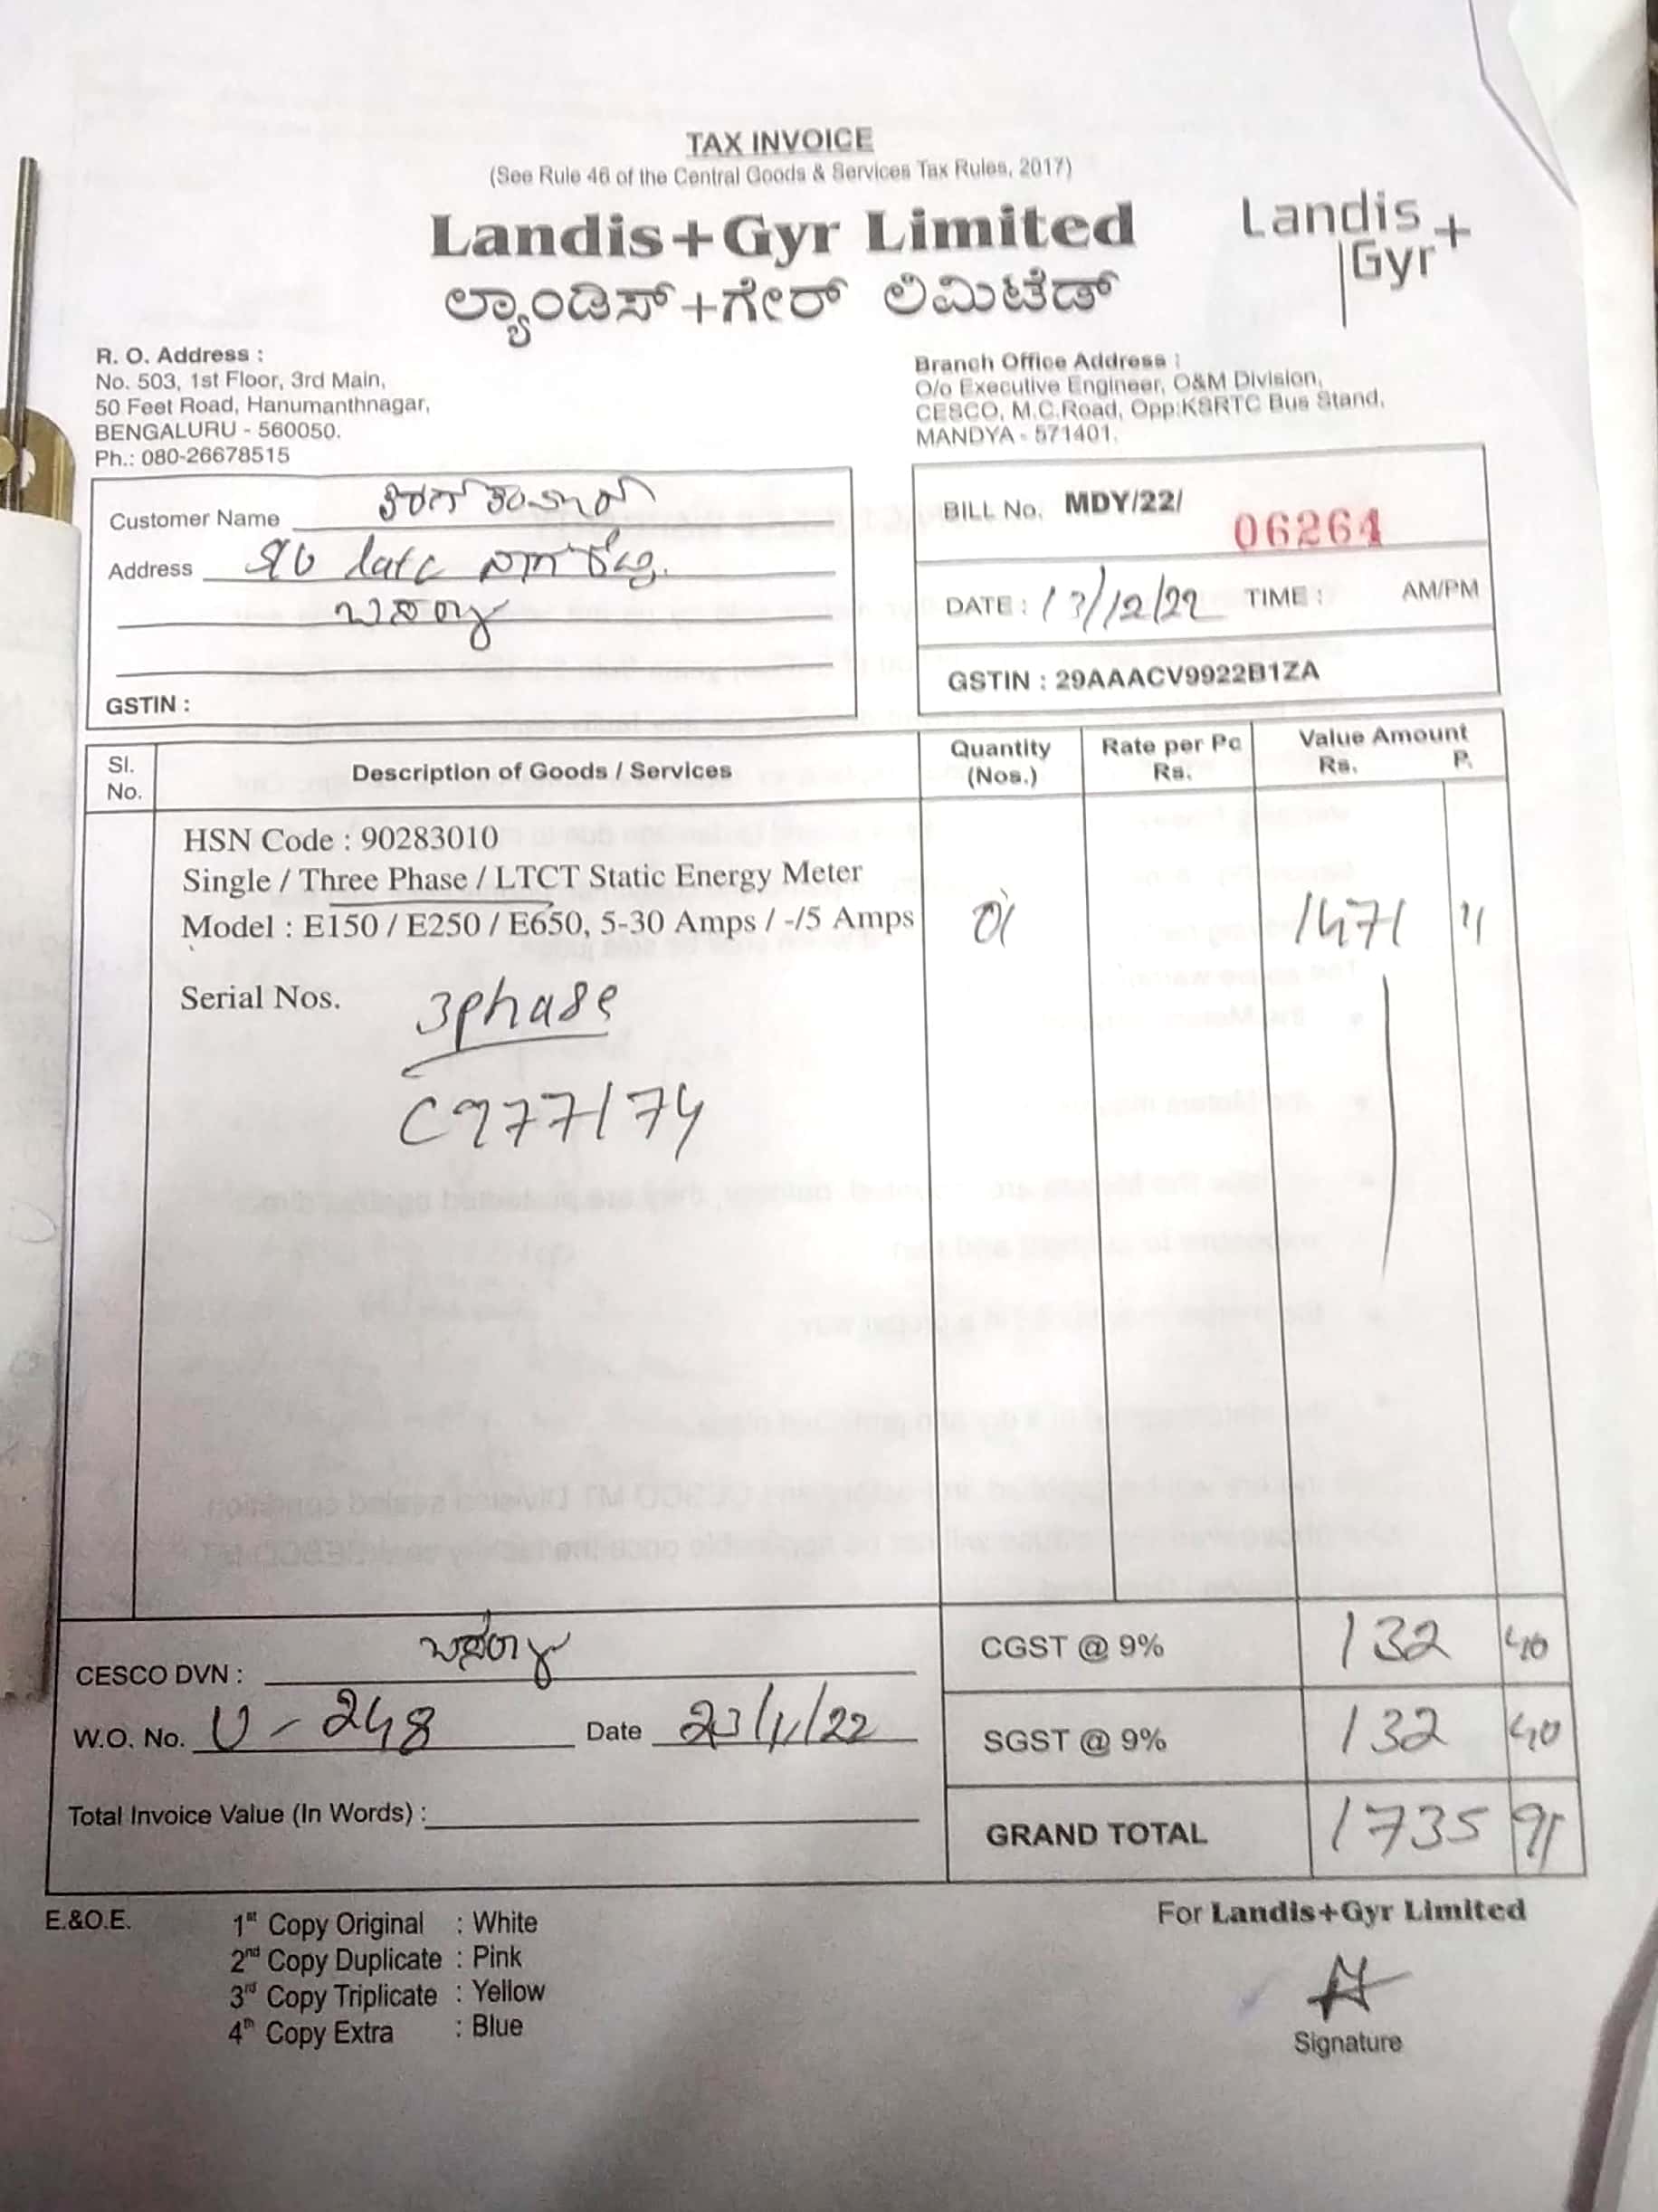 TAX INVOICE
(See Rule 46 of the Central Goods & Services Tax Rules, 2017)
Landis+Gyr Limited
Landis+
Gyr
ಲ್ಯಾಂಡಿಸ್+ಗೇರ್ ಲಿಮಿಟೆಡ್
R. O. Address :
No. 503, 1st Floor, 3rd Main,
50 Feet Road, Hanumanthnagar,
BENGALURU - 560050.
Ph.: 080-26678515
Branch Office Address :
O/o Executive Engineer, O&M Division,
CESCO, M.C.Road, Opp:KSRTC Bus Stand,
MANDYA - 571401.
Customer Name
Address late
GSTIN :
BILL No. MDY/22/ 06264
DATE : 13/12/22 TIME : AM/PM
GSTIN : 29AAACV9922B1ZA
Sl. No. Description of Goods / Services Quantity (Nos.) Rate per Pc Rs. Value Amount Rs. P.
HSN Code : 90283010
Single / Three Phase / LTCT Static Energy Meter
Model : E150 / E250 / E650, 5-30 Amps / -/5 Amps 01 1471 11
Serial Nos. 3phase
C977174
CESCO DVN :
CGST @ 9% 132 40
W.O. No. U - 248 Date 23/11/22
SGST @ 9% 132 40
Total Invoice Value (In Words) :
GRAND TOTAL 1735 91
E.&O.E.
1st Copy Original : White
2nd Copy Duplicate : Pink
3rd Copy Triplicate : Yellow
4th Copy Extra : Blue
For Landis+Gyr Limited
Signature